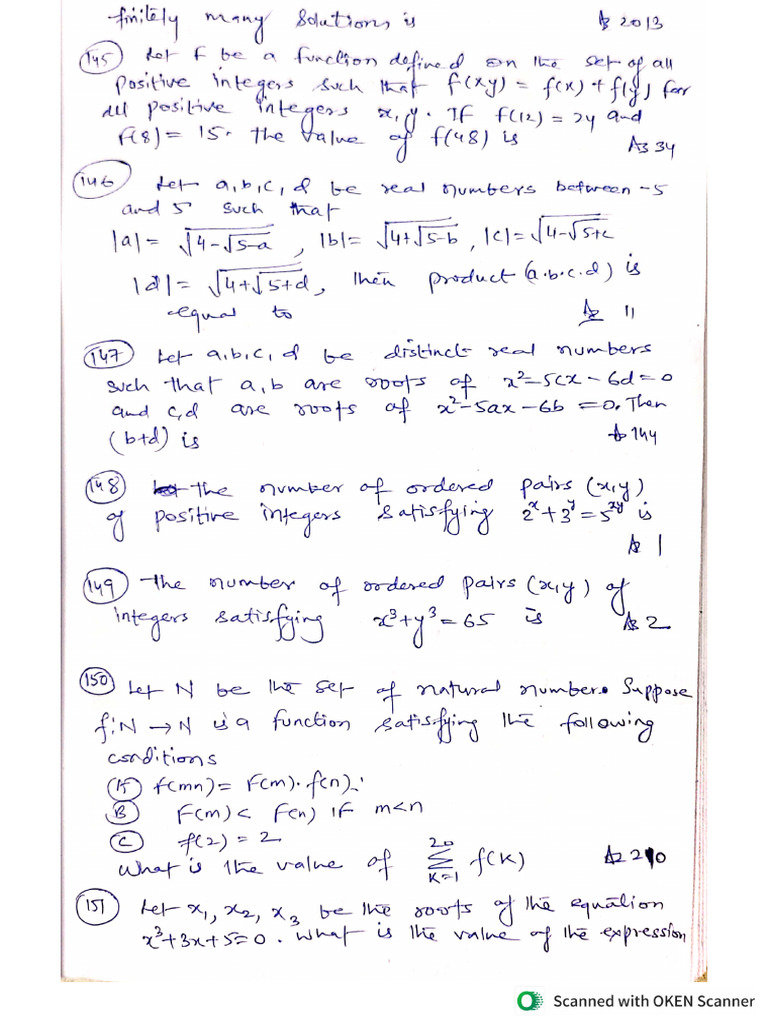 finitely many solutions is A 2013
145 Let F be a function defined on the set of all
positive integers such that f(xy) = f(x) + f(y) for
all positive integers x, y. If f(12) = 24 and
F(8) = 15. the value of f(48) is A 34
146 Let a, b, c, d be real numbers between -5
and 5 such that
|a| = √(4-√(5-a)), |b| = √(4+√(5-b)), |c| = √(4-√(5+c))
|d| = √(4+√(5+d)), then product (a.b.c.d) is
equal to A 11
147 Let a,b,c,d be distinct real numbers
such that a,b are roots of x²-5cx-6d=0
and c,d are roots of x²-5ax-6b=0. Then
(b+d) is A 144
148 The number of ordered pairs (x,y)
of positive integers satisfying 2^x+3^y=5^xy is
A 1
149 The number of ordered pairs (x,y) of
integers satisfying x³+y³=65 is A 2
150 Let N be the set of natural numbers. Suppose
f:N→N is a function satisfying the following
conditions
A f(mn) = F(m).f(n).
B F(m) < F(n) if m<n
C f(2) = 2
What is the value of 20 Σ K=1 f(K) A 210
151 Let x₁, x₂, x₃ be the roots of the equation
x³+3x+5=0. What is the value of the expression
Scanned with OKEN Scanner